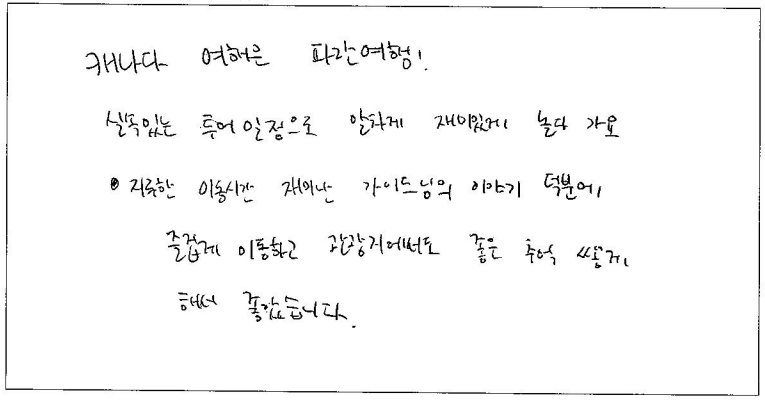 캐나다 여행은 파란여행!
실속있는 투어일정으로 알차게 재미있게 놀다 가요
● 지루한 이동시간 재미난 가이드님의 이야기 덕분에,
즐겁게 이동하고 관광지에서도 좋은 추억 쌓게,
해서 좋았습니다.